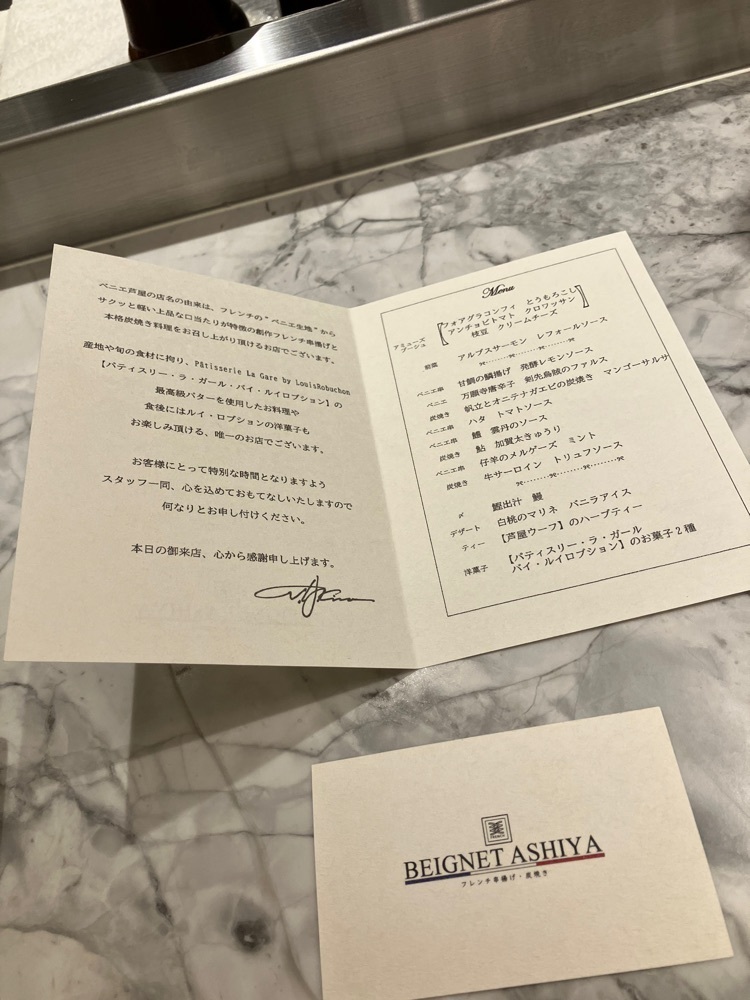 ベニエ芦屋の店名の由来は、フレンチの“ベニエ生地”から
サクッと軽い上品な口当たりが特徴の創作フレンチ串揚げと
本格炭焼き料理をお召し上がり頂けるお店でございます。
産地や旬の食材に拘り、Pâtisserie La Gare by LouisRobuchon
【パティスリー・ラ・ガール・バイ・ルイロブション】の
最高級バターを使用したお料理や
食後にはルイ・ロブションの洋菓子も
お楽しみ頂ける、唯一のお店でございます。
お客様にとって特別な時間となりますよう
スタッフ一同、心を込めておもてなしいたしますので
何なりとお申し付けください。
本日の御来店、心から感謝申し上げます。
Menu
アミューズ ブーシュ
フォアグラコンフィ とうもろこし
アンチョビトマト クロワッサン
枝豆 クリームチーズ
前菜 アルプスサーモン レフォールソース
ベニエ串 甘鯛の鱗揚げ 発酵レモンソース
ベニエ 万願寺唐辛子 剣先烏賊のファルス
炭焼き 帆立とオニテナガエビの炭焼き マンゴーサルサ
ベニエ串 ハタ トマトソース
ベニエ串 鱧 雲丹のソース
炭焼き 鮎 加賀太きゅうり
ベニエ串 仔羊のメルゲーズ ミント
炭焼き 牛サーロイン トリュフソース
〆 鰹出汁 鰻
デザート 白桃のマリネ バニラアイス
ティー 【芦屋ウーフ】のハーブティー
洋菓子 【パティスリー・ラ・ガール
バイ・ルイロブション】のお菓子2種
BEIGNET ASHIYA
フレンチ串揚げ・炭焼き